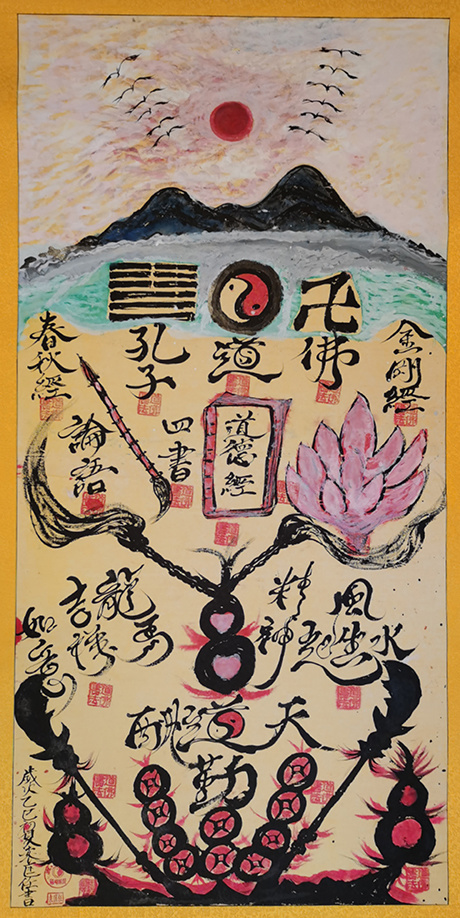 金剛經
佛
道
孔子
春秋經
道德經
四書
論語
風生水起
精神
龍馬
吉祥
如意
天道酬
勤
歲次乙巳